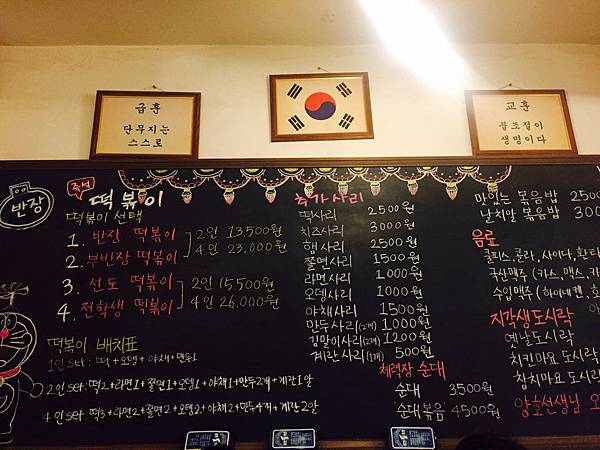 급훈
단무지는
스스로
교훈
물조절이
생명이다
반장
즉석 떡볶이
떡볶이 선택
1. 반장 떡볶이
2. 부반장 떡볶이
2인 13,500원
4인 23,000원
3. 선도 떡볶이
4. 전학생 떡볶이
2인 15,500원
4인 26,000원
떡볶이 배치표
1인 set : 떡 + 오뎅 + 야채 + 만두1
2인 set : 떡2 + 라면1 + 쫄면1 + 오뎅1 + 야채1 + 만두2개 + 계란1알
4인 set : 떡3 + 라면2 + 쫄면2 + 오뎅2 + 야채2 + 만두4개 + 계란2알
추가사리
떡사리 2500원
치즈사리 3000원
햄사리 2500원
쫄면사리 1500원
라면사리 1000원
오뎅사리 1000원
야채사리 1500원
만두사리(2개) 1000원
김말이사리(2개) 1200원
계란사리(1개) 500원
체력장 순대
순대 3500원
순대볶음 4500원
맛있는 볶음밥 2500
날치알 볶음밥 300
음료
쿨피스, 콜라, 사이다, 환타
국산맥주 (카스, 맥스, 카
수입맥주 (하이네켄, 호
지각생도시락
옛날도시락
치키마요 도시락
참치마요 도시락
양호선생님